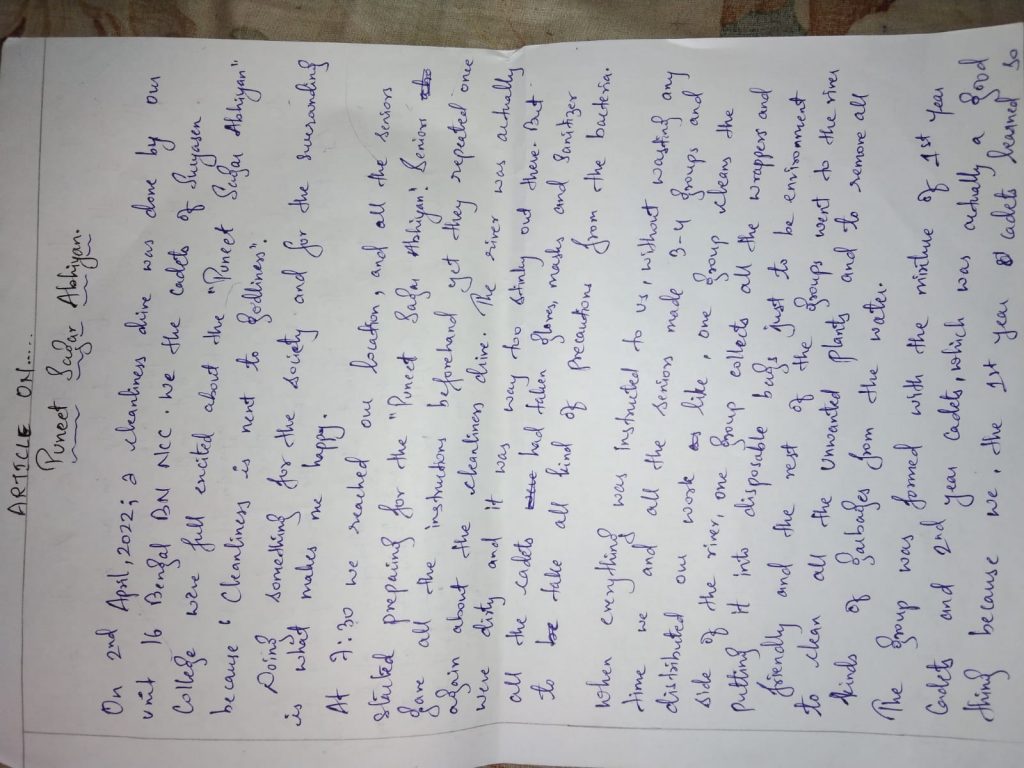 ARTICLE ON.....
Puneet Sagar Abhiyan.
On 2nd April, 2022; a cleanliness drive was done by our
unit 16 Bengal BN NCC. We the cadets of Suryasen
College were full excited about the "Puneet Sagar Abhiyan"
because 'Cleanliness is next to Godliness'.
Doing something for the society and for the surrounding
is what makes me happy.
At 7:30 we reached our location, and all the seniors
started prepairing for the "Puneet Sagar Abhiyan". Seniors
gave all the instructions beforehand yet they repeated once
again about the cleanliness drive. The river was actually
were dirty and it was way too stinky out there. But
all the cadets had taken gloves, masks and sanitizer
to take all kind of precautions from the bacteria.
When everything was instructed to us, without wasting any
time we and all the seniors made 3-4 groups and
distributed our work like, one group cleans the
side of the river, one group collects all the wrappers and
putting it into disposable bags just to be environment
friendly and the rest of the groups went to the river
to clean all the unwanted plants and to remove all
kinds of gabages from the water.
The group was formed with the mixture of 1st year
Cadets and 2nd year cadets, which was actually a good
thing because we, the 1st year cadets learned so